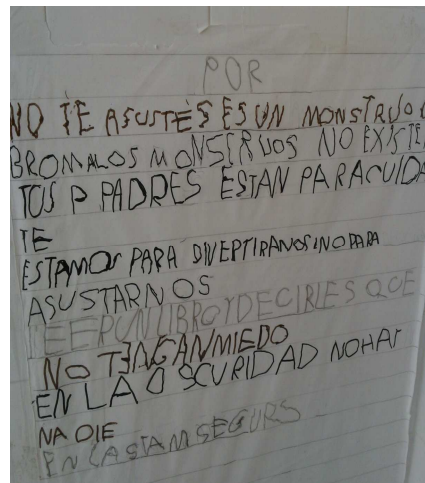 POR
NO TE ASUSTES ES UN MONSTRUO
BROMA LOS MONSTRUOS NO EXISTE
TUS P PADRES ESTAN PARA CUIDA
TE
ESTAMOS PARA DIVERTIRANOS INO PARA
ASUSTARNOS
LEER UN LIBRO Y DECIRLES QUE
NO TENGAN MIEDO
EN LA O SCURIDAD NO HAY
NADIE
EN CASTAM SEGURS